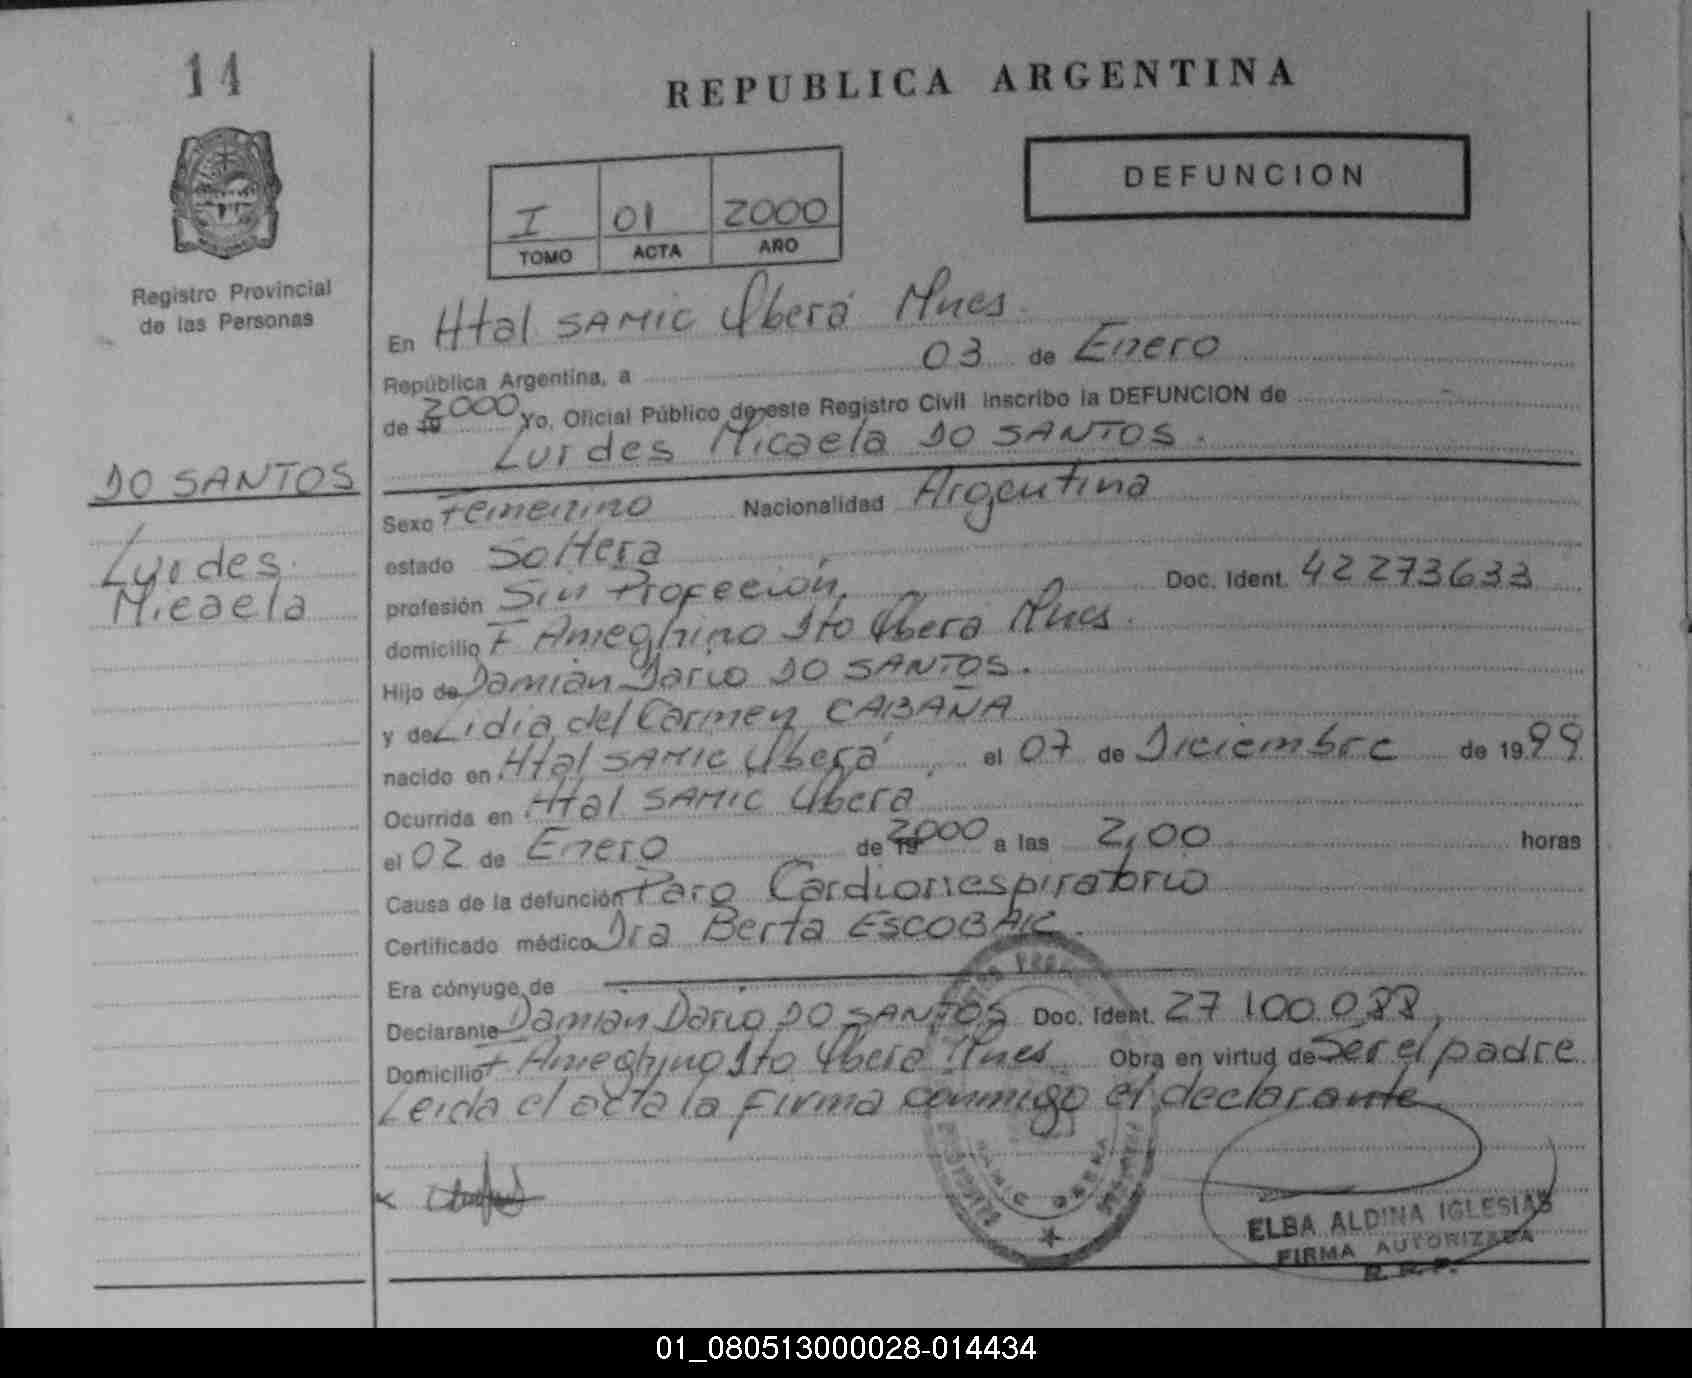 14
REPUBLICA ARGENTINA
DEFUNCION
I 01 2000
TOMO ACTA AÑO
Registro Provincial
de las Personas
En Htal SAMIC Oberá Mnes.
República Argentina, a 03 de Enero
de 19 2000 Yo, Oficial Público de este Registro Civil inscribo la DEFUNCION de
Lurdes Micaela DO SANTOS.
DO SANTOS
Lurdes
Micaela
Sexo Femenino Nacionalidad Argentina
estado Soltera
profesión Sin Profeción, Doc. Ident. 42273633
domicilio F Ameghino Dto Oberá Mnes.
Hijo de Damián Dario DO SANTOS.
y de Lidia del Carmen CABAÑA
nacido en Htal SAMIC Oberá el 07 de Diciembre de 1999
Ocurrida en Htal SAMIC Oberá
el 02 de Enero de 19 2000 a las 2,00 horas
Causa de la defunción Paro Cardiorrespiratorio
Certificado médico Dra Berta ESCOBAR.
Era cónyuge de
Declarante Damian Dario DO SANTOS Doc. Ident. 27 100 088,
Domicilio F Ameghino Dto Oberá Mnes Obra en virtud de Ser el padre
Leida el acta la firma conmigo el declarante
SAMIC OBERA
ELBA ALDINA IGLESIAS
FIRMA AUTORIZADA
R. P. P.
01_080513000028-014434